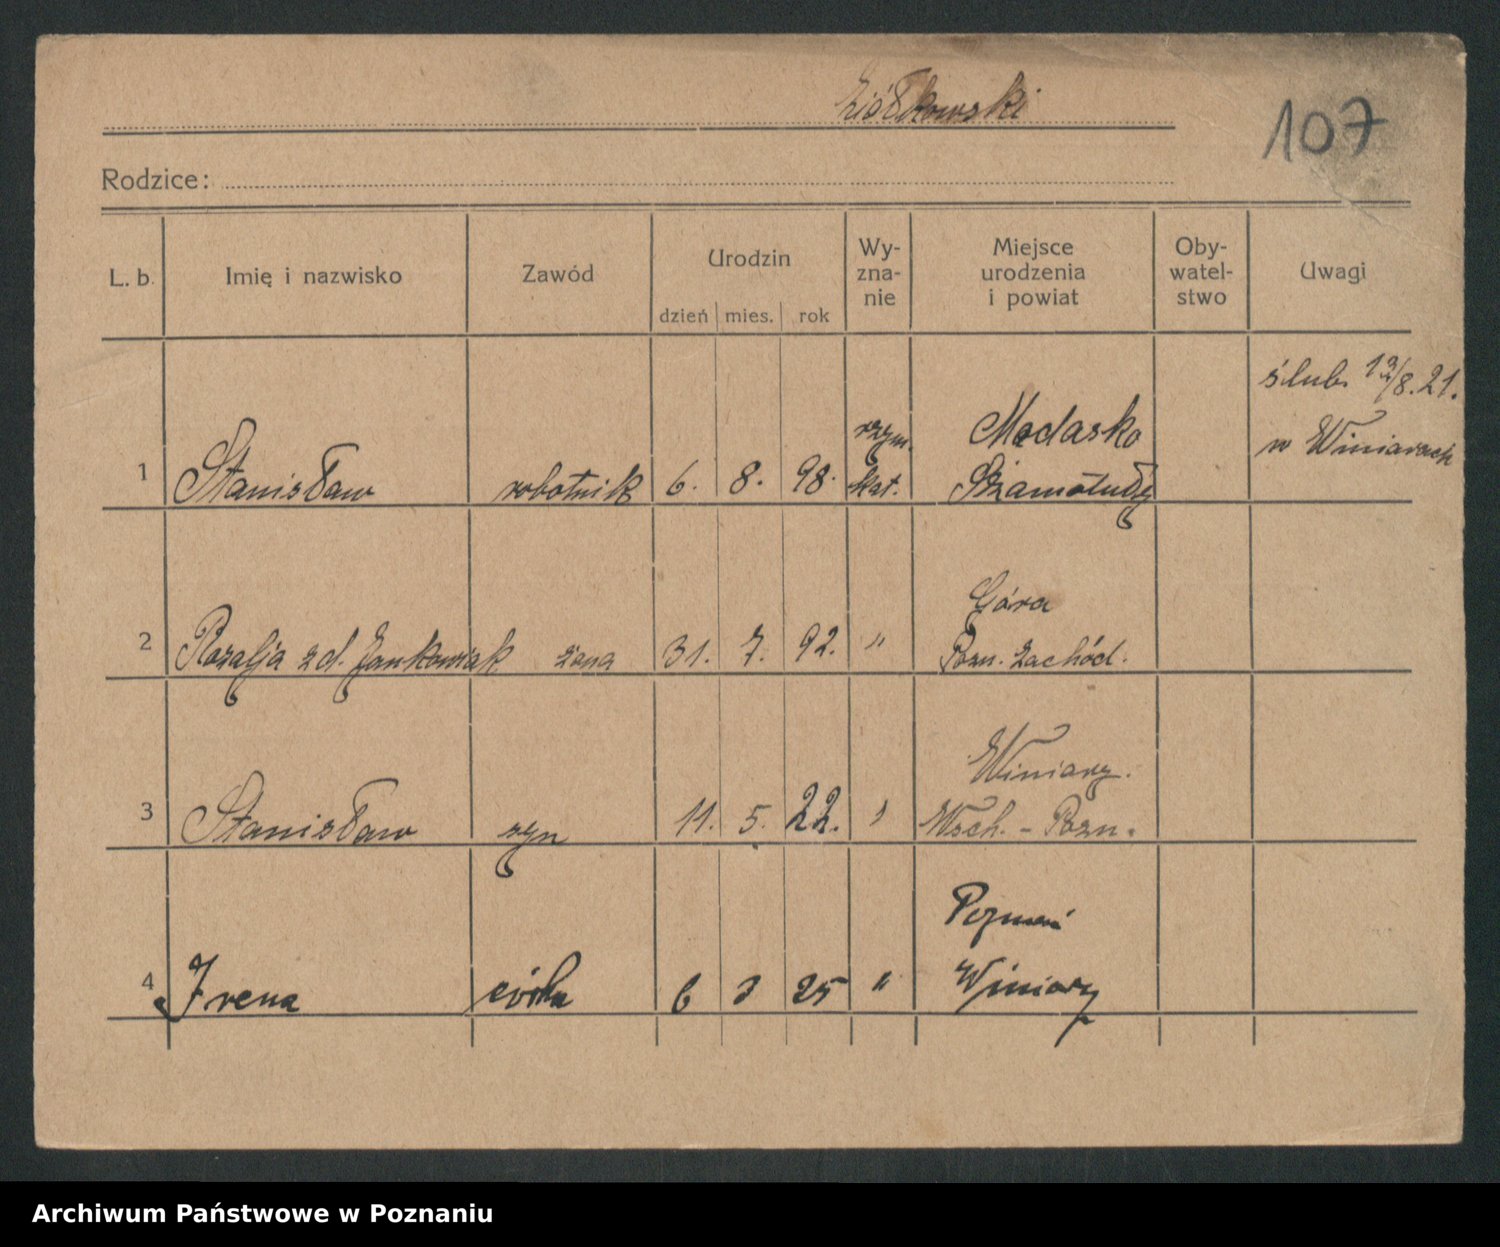 Ziółkowski
107
Rodzice:
L. b. Imię i nazwisko Zawód Urodzin dzień mies. rok Wy-zna-nie Miejsce urodzenia i powiat Oby-watel-stwo Uwagi
ślub 8.21.
w Winiarach
1 Stanisław robotnik 6. 8. 98. rzym. kat. Szamotuły
Góra
2 Rozalja z d. Jankowiak żona 31. 7. 92. " Pozn. Zachód.
Winiary.
3 Stanisław syn 11. 5. 22. " Wsch. - Pozn.
Poznań
4 Irena córka 6 3 25 " Winiary
Archiwum Państwowe w Poznaniu